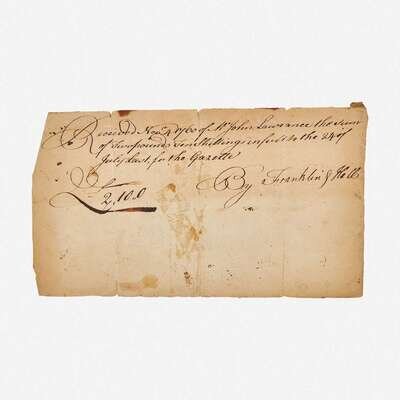 Received Novr. 4 1760 of Mr John Lawrence the Sum
of Two pounds ten shillings in full to the 24 of
July Last for the Gazette
£ 2,10.0
By Franklin & Hall